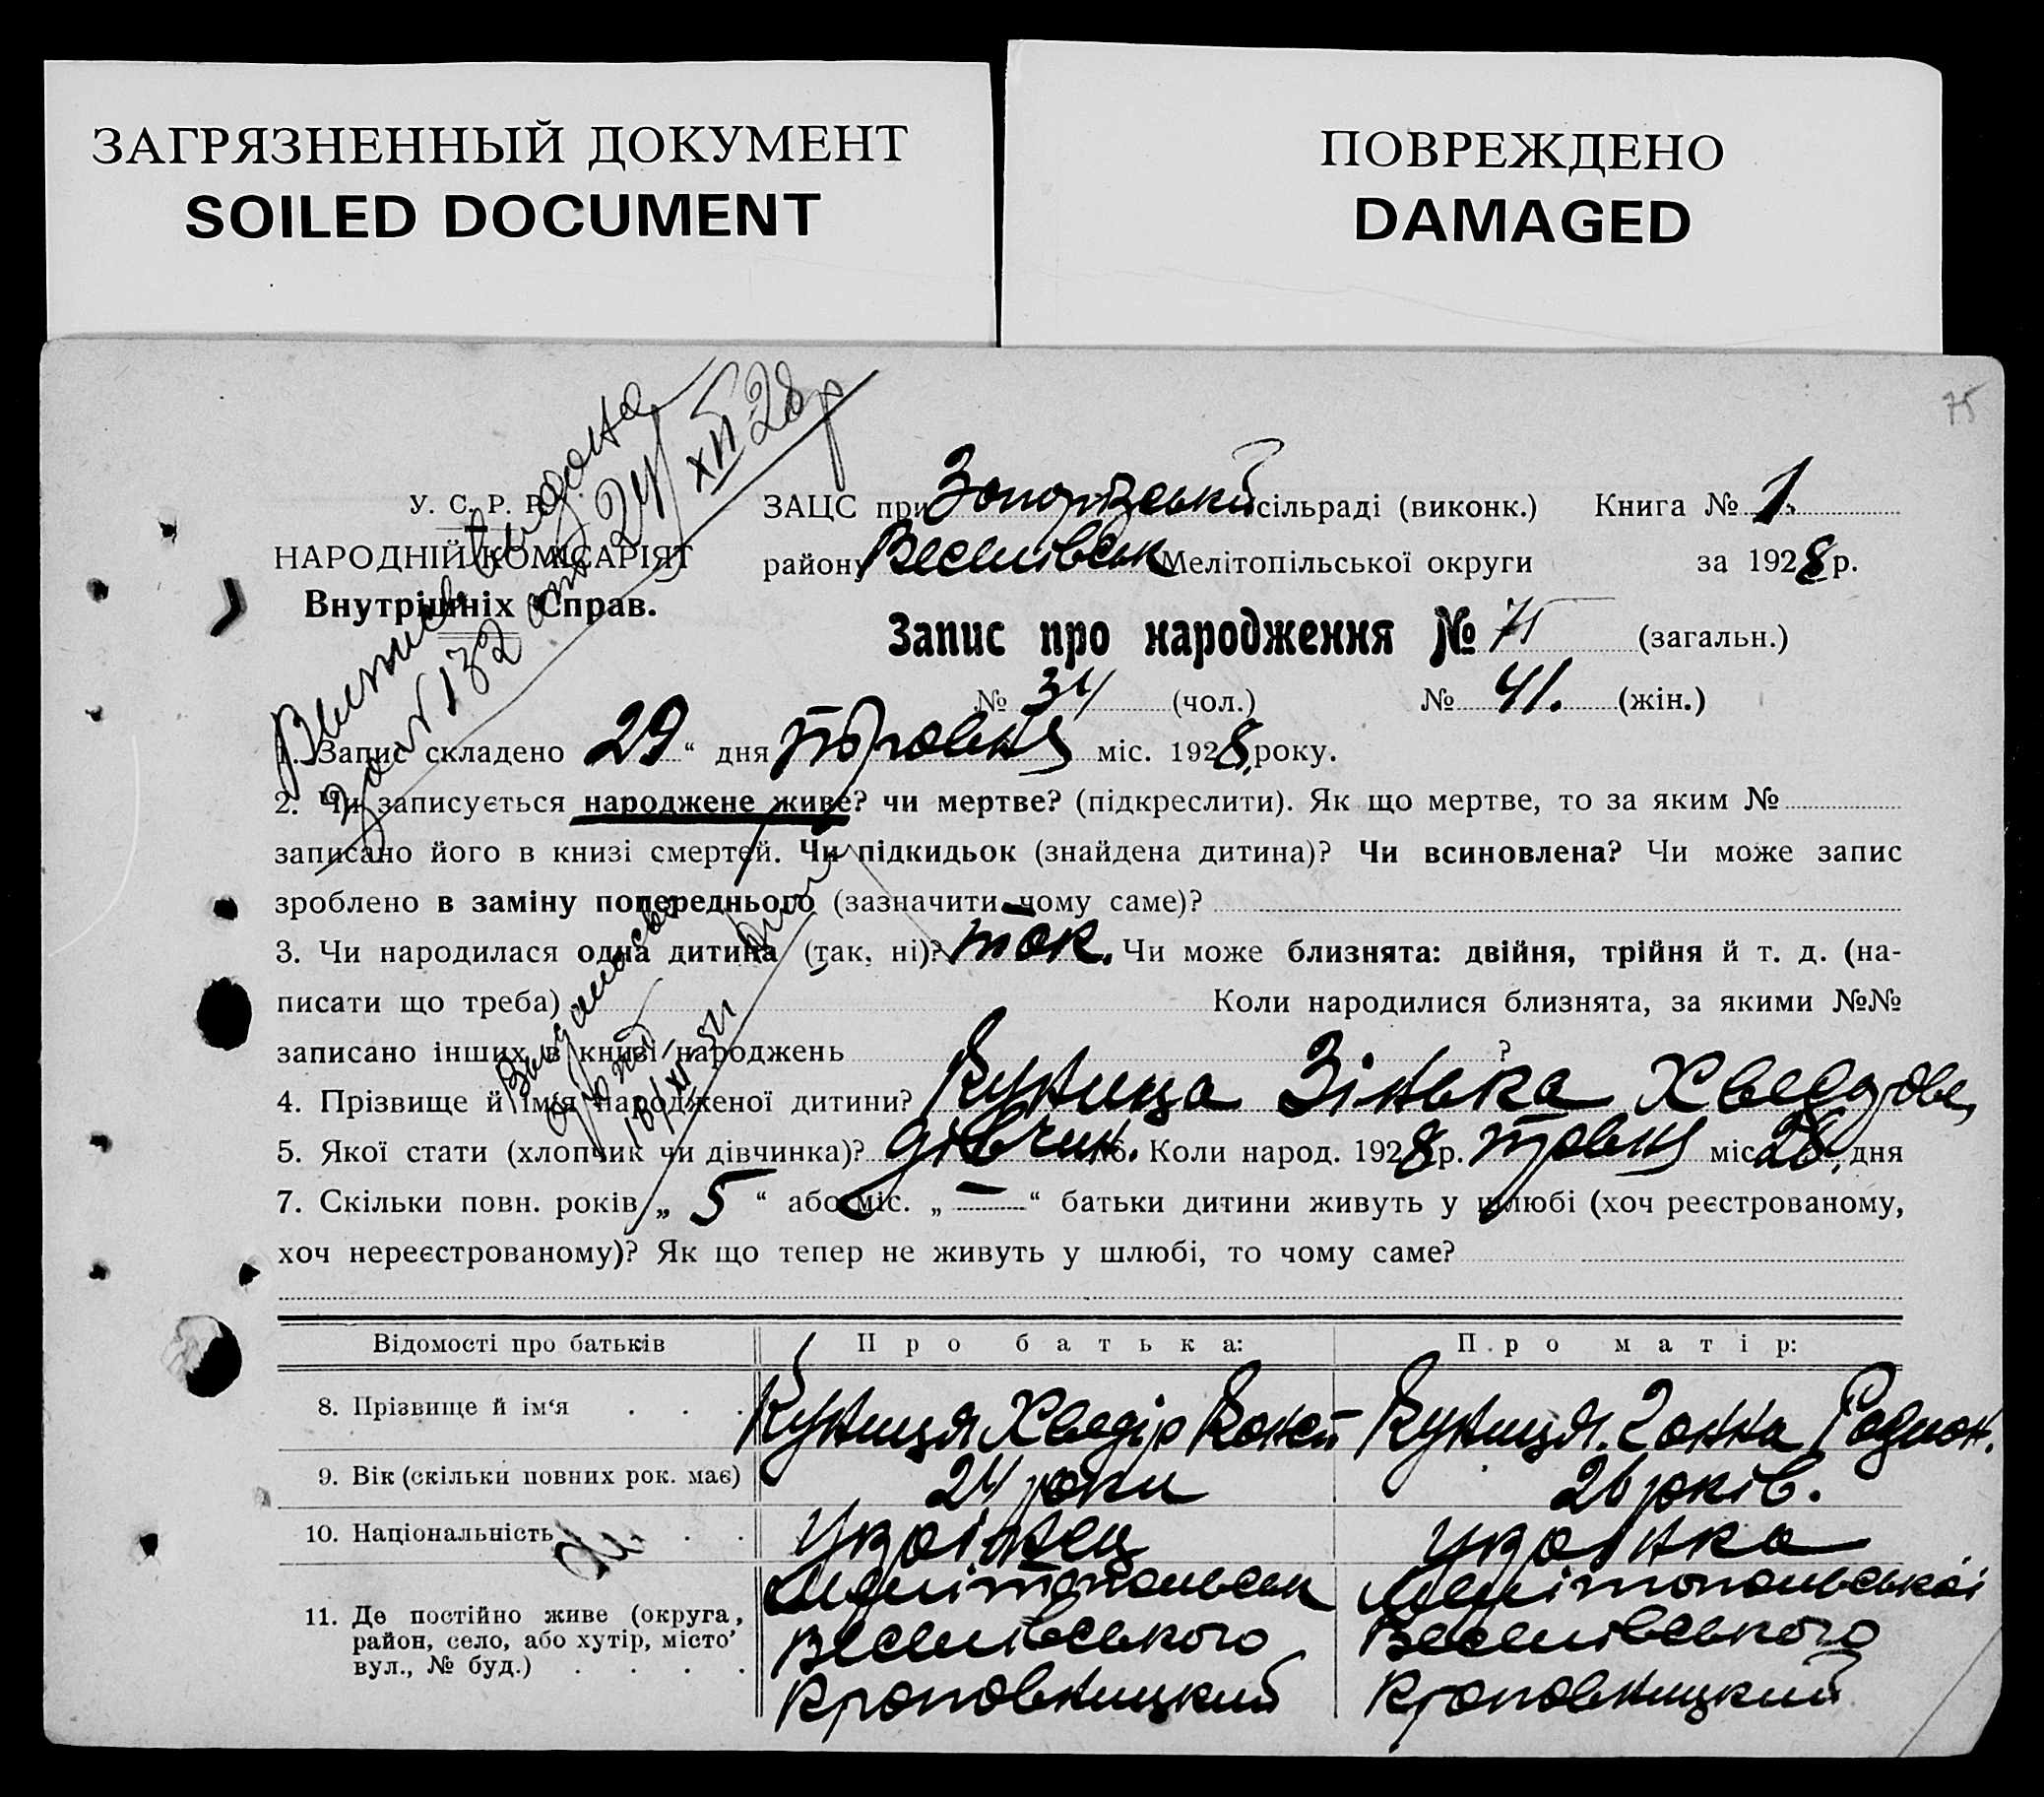 ЗАГРЯЗНЕННЫЙ ДОКУМЕНТ
SOILED DOCUMENT
ПОВРЕЖДЕНО
DAMAGED
75
Выпись выдана
за № 132 от 24/XII 28 р
У. С. Р. Р.
НАРОДНІЙ КОМІСАРІЯТ
Внутрішніх Справ.
ЗАЦС при сільраді (виконк.) Книга № 1.
району Веселівськ Мелітопільської округи за 1928 р.
Запис про народження № 75 (загальн.)
№ 34 (чол.) № 41. (жін.)
1. Запис складено 29 “ дня травня міс. 1928 року.
2. Чи записується народжене живе? чи мертве? (підкреслити). Як що мертве, то за яким №
записано його в книзі смертей. Чи підкидьок (знайдена дитина)? Чи всиновлена? Чи може запис
зроблено в заміну попереднього (зазначити чому саме)?
3. Чи народилася одна дитина (так, ні)? так. Чи може близнята: двійня, трійня й т. д. (на-
писати що треба) Коли народилися близнята, за якими №№
записано інших в книзі народжень ?
4. Прізвище й ім‘я народженої дитини? Куница Зінька Хведоров
5. Якої стати (хлопчик чи дівчинка)? дівчин. 6. Коли народ. 1928 р. травня міс. 28 дня
7. Скільки повн. років „ 5 “ або міс. „ — “ батьки дитини живуть у шлюбі (хоч реєстрованому,
хоч нереєстрованому)? Як що тепер не живуть у шлюбі, то чому саме?
Відомості про батьків Про батька: Про матір:
8. Прізвище й ім‘я . . . Куниця Хведір Куниця Ганна Родион.
9. Вік (скільки повних рок. має) 24 роки 26 років.
10. Національність . . . Українец Українка
11. Де постійно живе (округа, район, село, або хутір, місто, вул., № буд.) . . . .
Мелітопольськ Мелітопольської
Веселівського Веселівського
Кропивницкий Кропивницкий